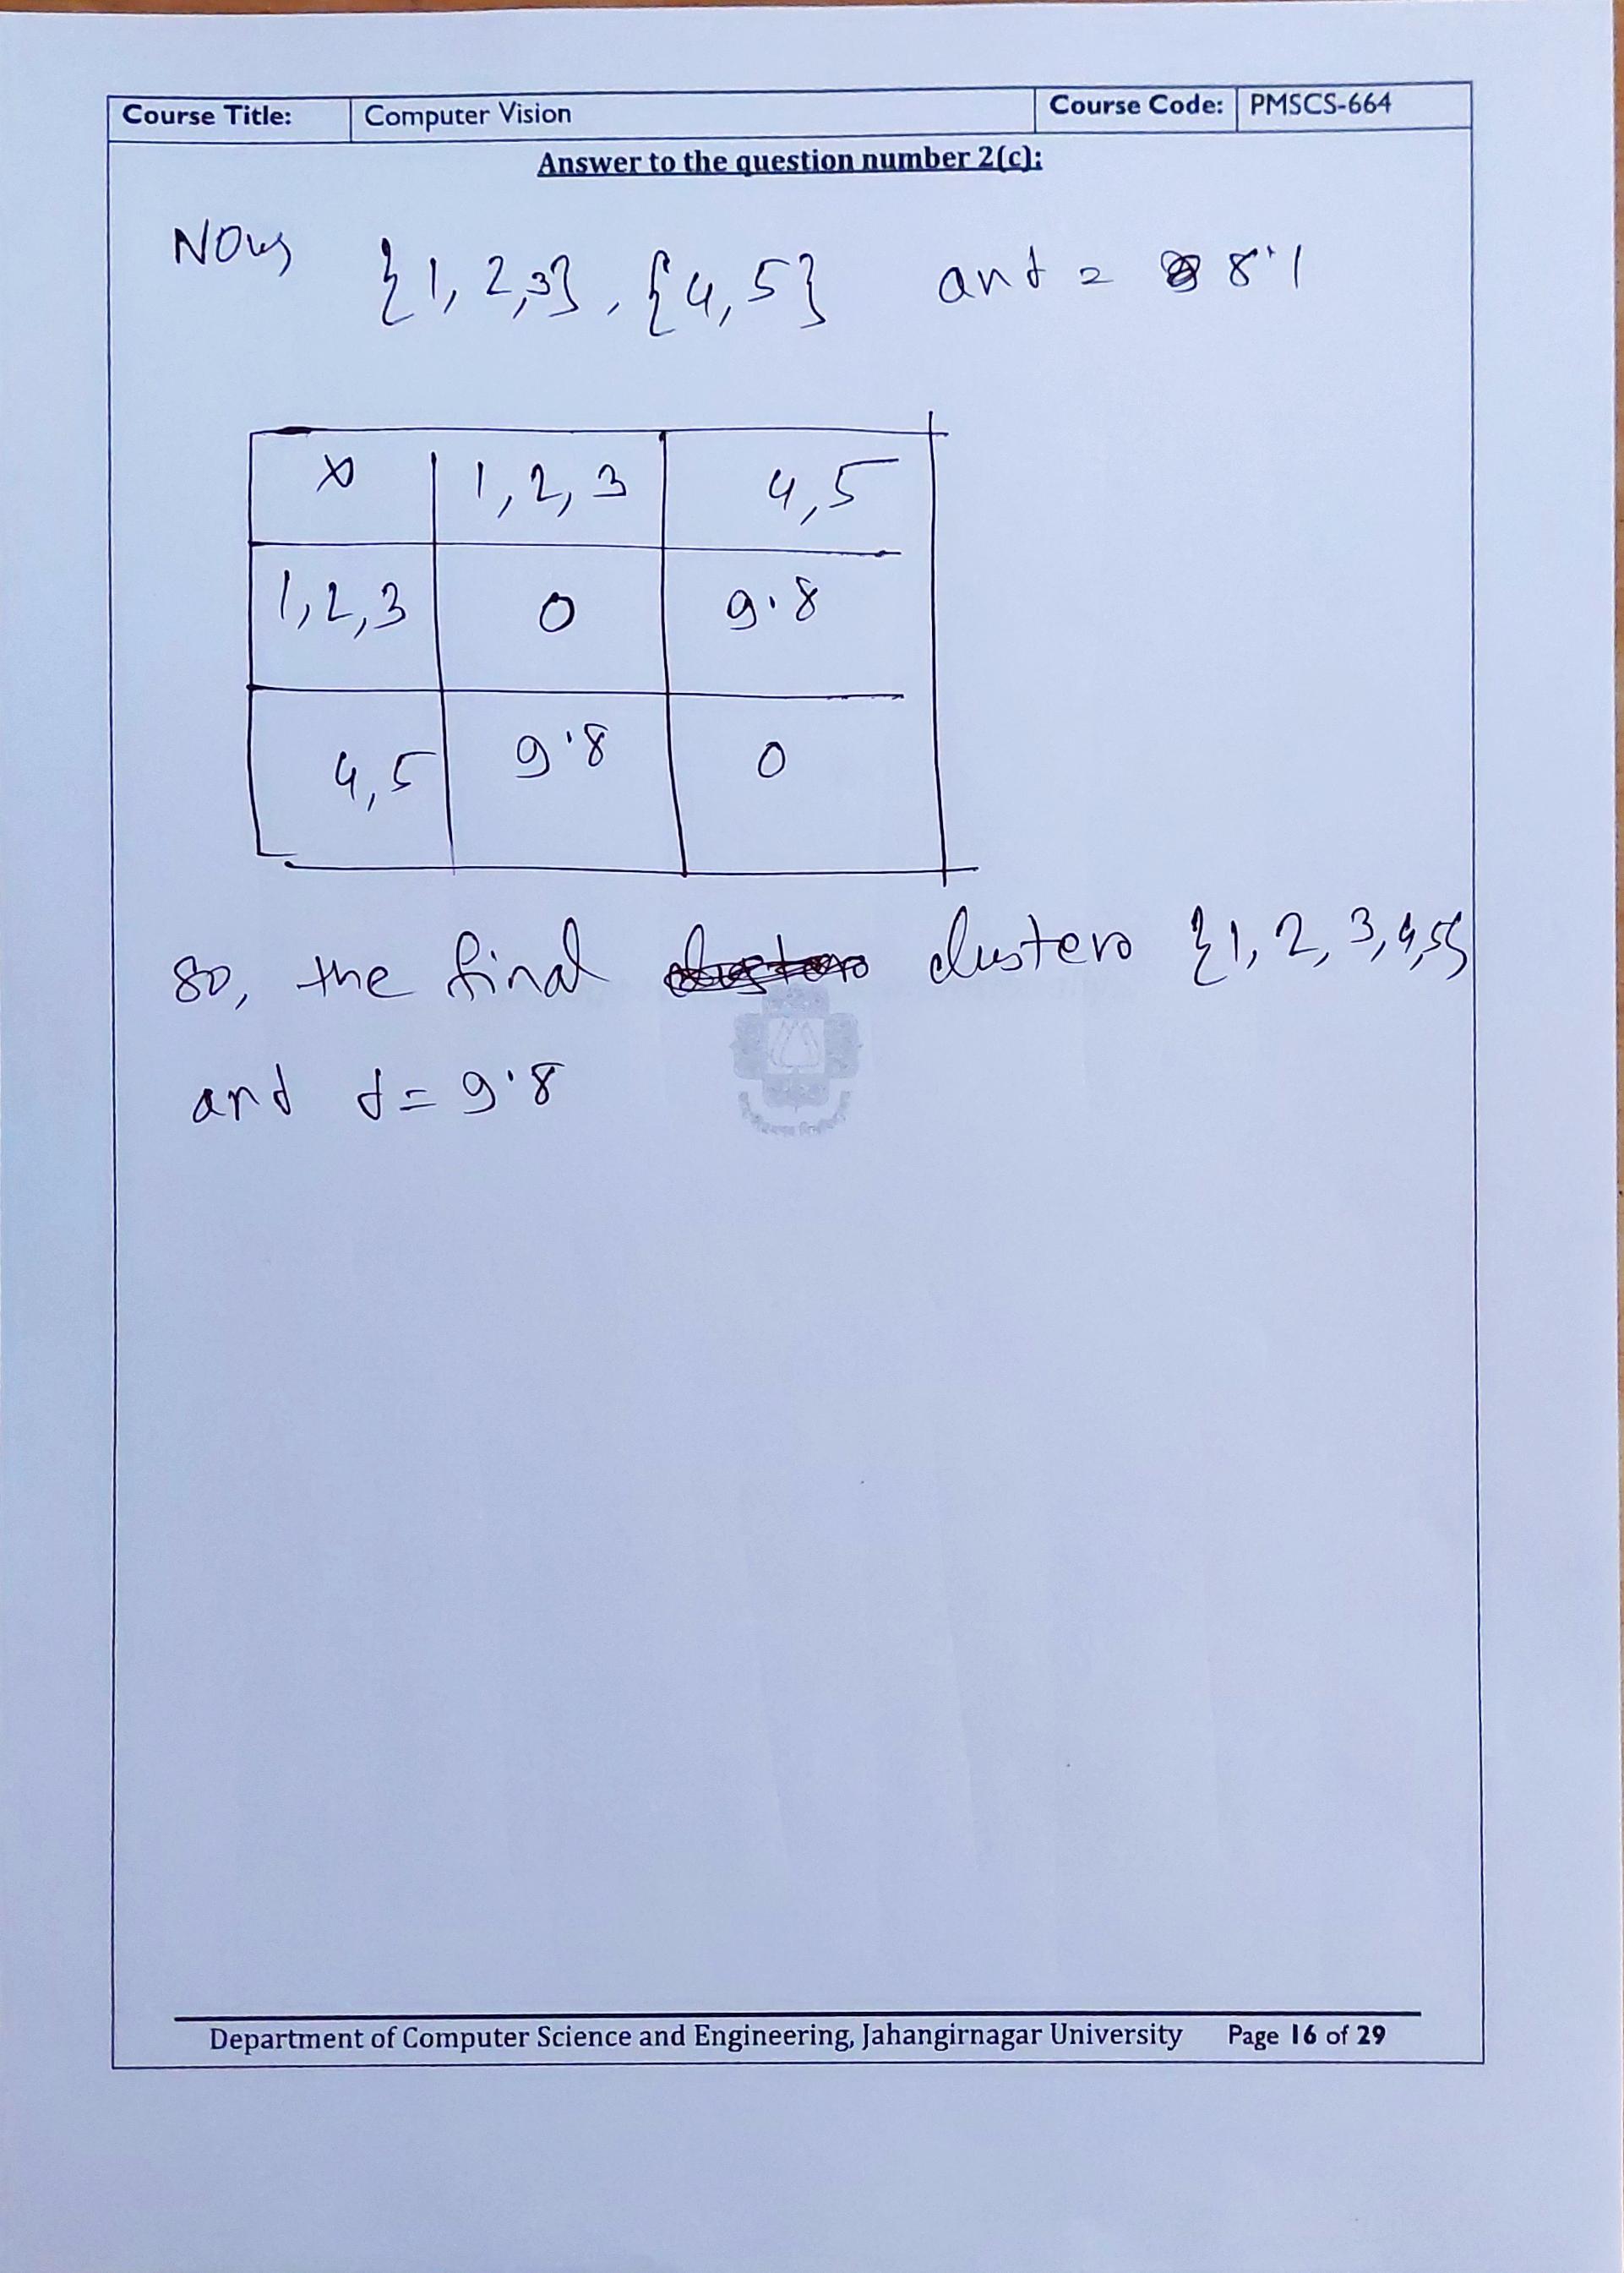 Course Title: Computer Vision Course Code: PMSCS-664
Answer to the question number 2(c):
Now {1, 2,3}, {4,5} and = 8.1
x 1, 2, 3 4,5
1,2,3 0 9.8
4,5 9.8 0
So, the final cluster {1, 2, 3,4,5}
and d = 9.8
Department of Computer Science and Engineering, Jahangirnagar University Page 16 of 29